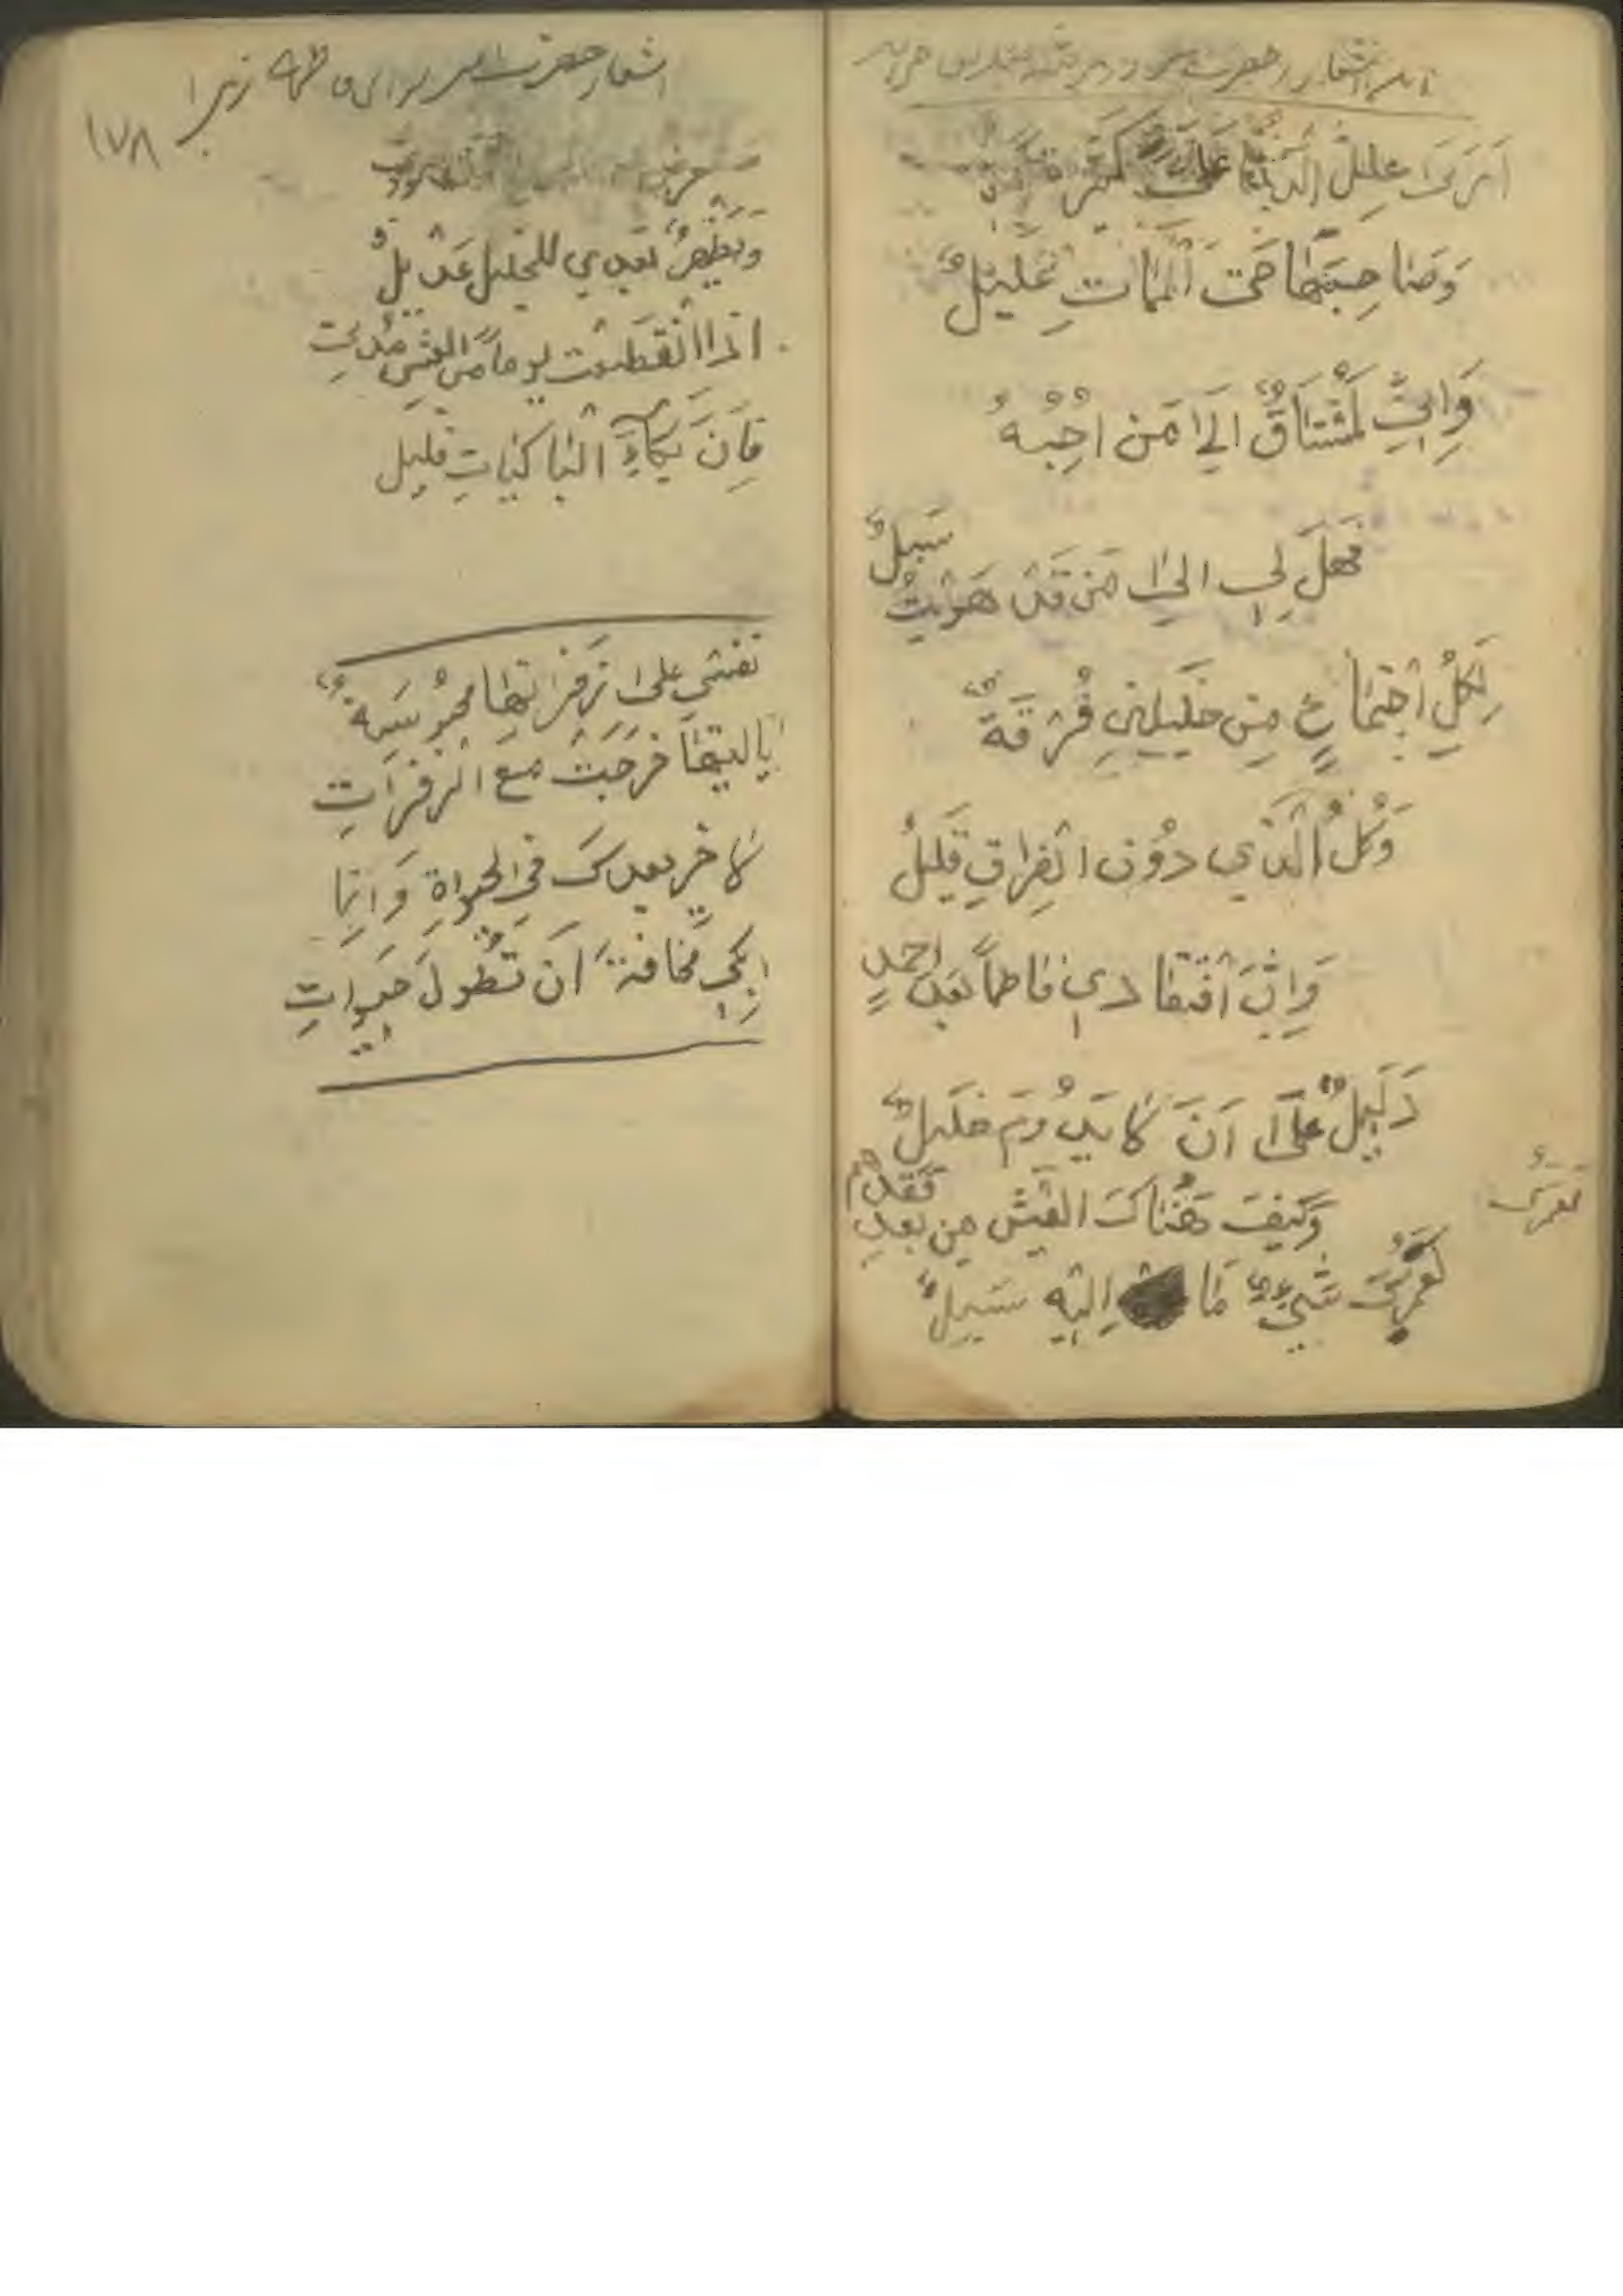 این اشعار از حضرت
اَرَىٰ عِلَلَ الدُّنْيَا عَلَيَّ كَثِيرَةً
وَصٰاحِبَهٰا حَتىٰ الْمَمٰاتِ عَلِيلٌ
وَاِنِّي لَمُشْتٰاقٌ اِلىٰ مَنْ اُحِبُّهُ
فَهَلْ لِي اِلىٰ مَنْ قَدْ هَوَيْتُ سَبيلٌ
لِكُلِّ اجْتِمٰاعٍ مِنْ خَلِيلَيْنِ فُرْقَةٌ
وَكُلُّ الَّذي دُونَ الْفِرٰاقِ قَلِيلٌ
وَاِنَّ افْتِقٰادي فٰاطِماً بَعْدَ اَحْمَدٍ
دَلِيلٌ عَلىٰ اَنْ لٰا يَدُومَ خَلِيلٌ
وَكَيْفَ هُنٰاكَ الْعَيْشُ مِنْ بَعْدِ فَقْدِهِمْ
لَعَمْرُكَ
لَعَمْرُكَ شَيْءٌ مٰا اِلَيْهِ سَبِيلٌ
اشعار حضرت امیر برای فاطمه زهرا
۱۷۸
وَيَظْهَرُ بَعْدي لِلْخَلِيلِ عَدْيلٌ
اِذَا انْقَطَعَتْ يوماً مِنَ الْعَيْشِ مُدَّتي
فَاِنَّ بُكٰاءَ الْبٰاكِيٰاتِ قَلِيل
نَفْسي عَلىٰ زَفَرٰاتِهٰا مَحْبُوسَةٌ
يٰا لَيْتَهٰا خَرَجَتْ مَعَ الزَّفَرٰاتِ
لٰا خَيْرَ بَعْدَكَ فِي الْحَيوٰةِ وَاِنَّمٰا
اَبْكي مَخٰافَةَ اَنْ تَطُولَ حَيوٰاتي